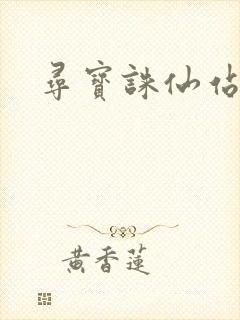 尋寶誅仙佔
黃香蓮